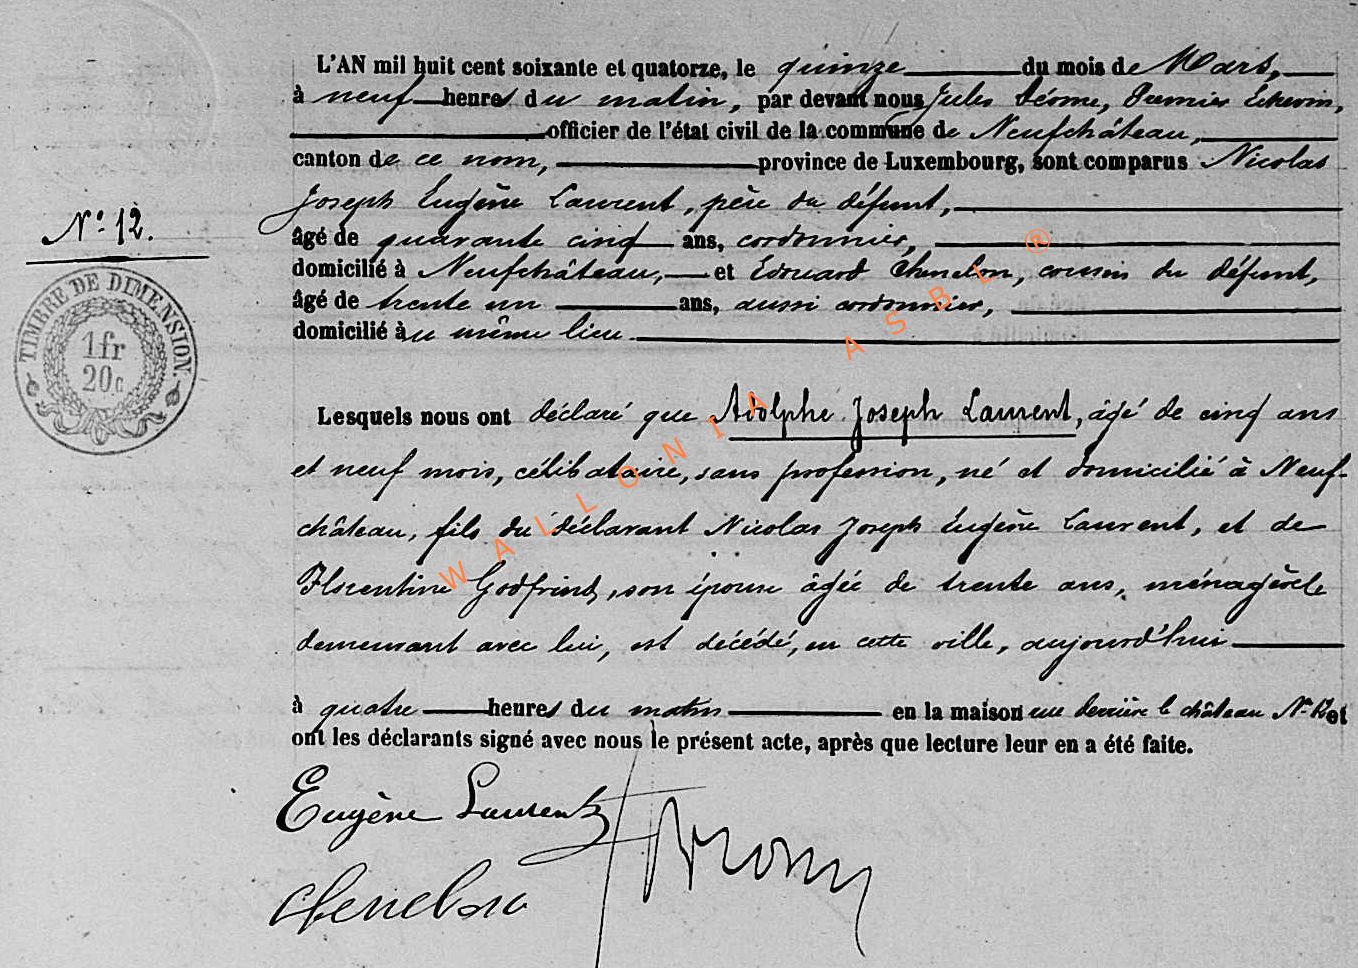 L'AN mil huit cent soixante et quatorze, le quinze du mois de Mars,
à neuf heures du matin, par devant nous Jules Premier Echevin,
officier de l'état civil de la commune de Neufchâteau,
canton de ce nom, province de Luxembourg, sont comparus Nicolas
Joseph Eugène Laurent, père du défunt,
N° 12.
âgé de quarante cinq ans, cordonnier,
domicilié à Neufchâteau, et Edouard cousin du défunt,
âgé de trente un ans, aussi cordonnier,
domicilié au même lieu.
TIMBRE DE DIMENSION.
1fr
20c
Lesquels nous ont déclaré que Adolphe Joseph Laurent, âgé de cinq ans
et neuf mois, célibataire, sans profession, né et domicilié à Neuf-
château, fils du déclarant Nicolas Joseph Eugène Laurent, et de
Florentine Godfrind, son épouse âgée de trente ans, ménagère
demeurant avec lui, est décédé, en cette ville, aujourd'hui
à quatre heures du matin en la maison rue derrière le château N° et
ont les déclarants signé avec nous le présent acte, après que lecture leur en a été faite.
Eugène Laurent
WALLONIA ASBL ®